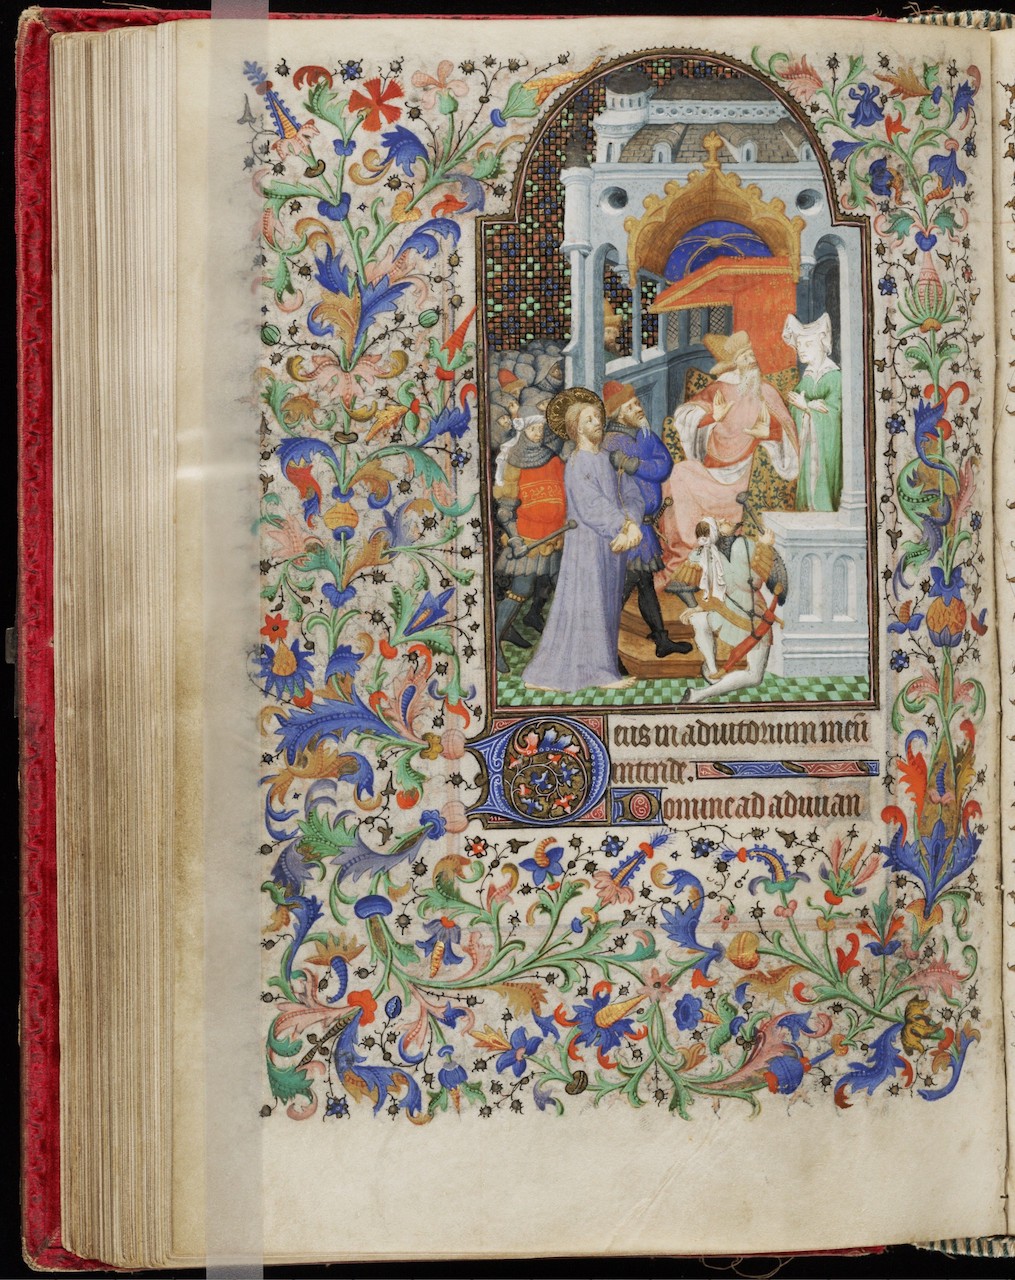 Deus in adiutorium meū
intende.
Domine ad adiuuan